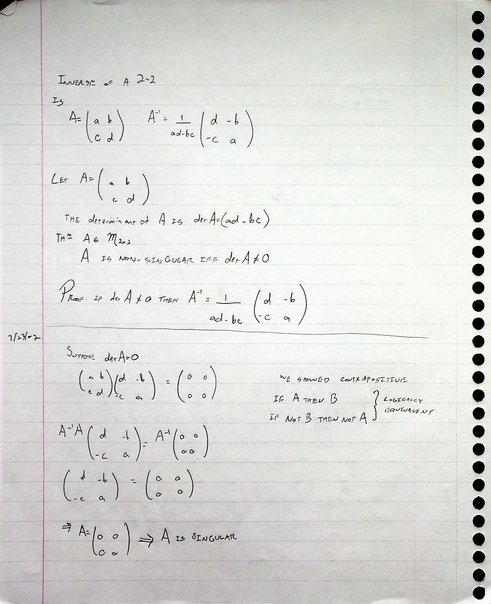 INVERSE OF A 2-2
IS
A = ( a b ; c d )   A⁻¹ = 1/(ad-bc) ( d -b ; -c a )
LET A = ( a b ; c d )
THE determinant of A IS det A = (ad - bc)
THM A ∈ M2x2
A IS NON-SINGULAR IFF det A ≠ 0
PROOF. IF det A ≠ 0 THEN A⁻¹ = 1/(ad-bc) ( d -b ; -c a )
SUPPOSE det A = 0
( a b ; c d ) ( d -b ; -c a ) = ( 0 0 ; 0 0 )
WE SHOWED CONTRAPOSITIVE
IF A THEN B
IF NOT B THEN NOT A } LOGICALLY EQUIVALENT
A⁻¹A ( d -b ; -c a ) = A⁻¹ ( 0 0 ; 0 0 )
( d -b ; -c a ) = ( 0 0 ; 0 0 )
⇒ A = ( 0 0 ; 0 0 ) ⇒ A IS SINGULAR